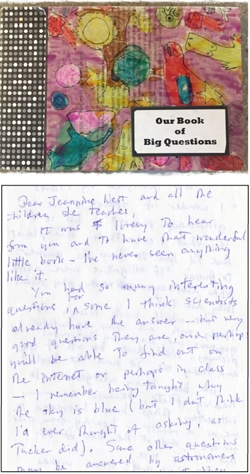 Our Book
of
Big Questions
Dear Jeannine West and all the
children she teaches,
It was lovely to hear
from you and to have that wonderful
little book – I've never seen anything
like it.
You had so many interesting
questions, for some I think scientists
already have the answer – but very
good questions they are, and perhaps
you'll be able to find out on
the internet or perhaps in class
– I remember being taught why
the sky is blue (but I don't think
I'd ever thought of asking, as
Tucker did). Some other questions
may be answered by astronomers